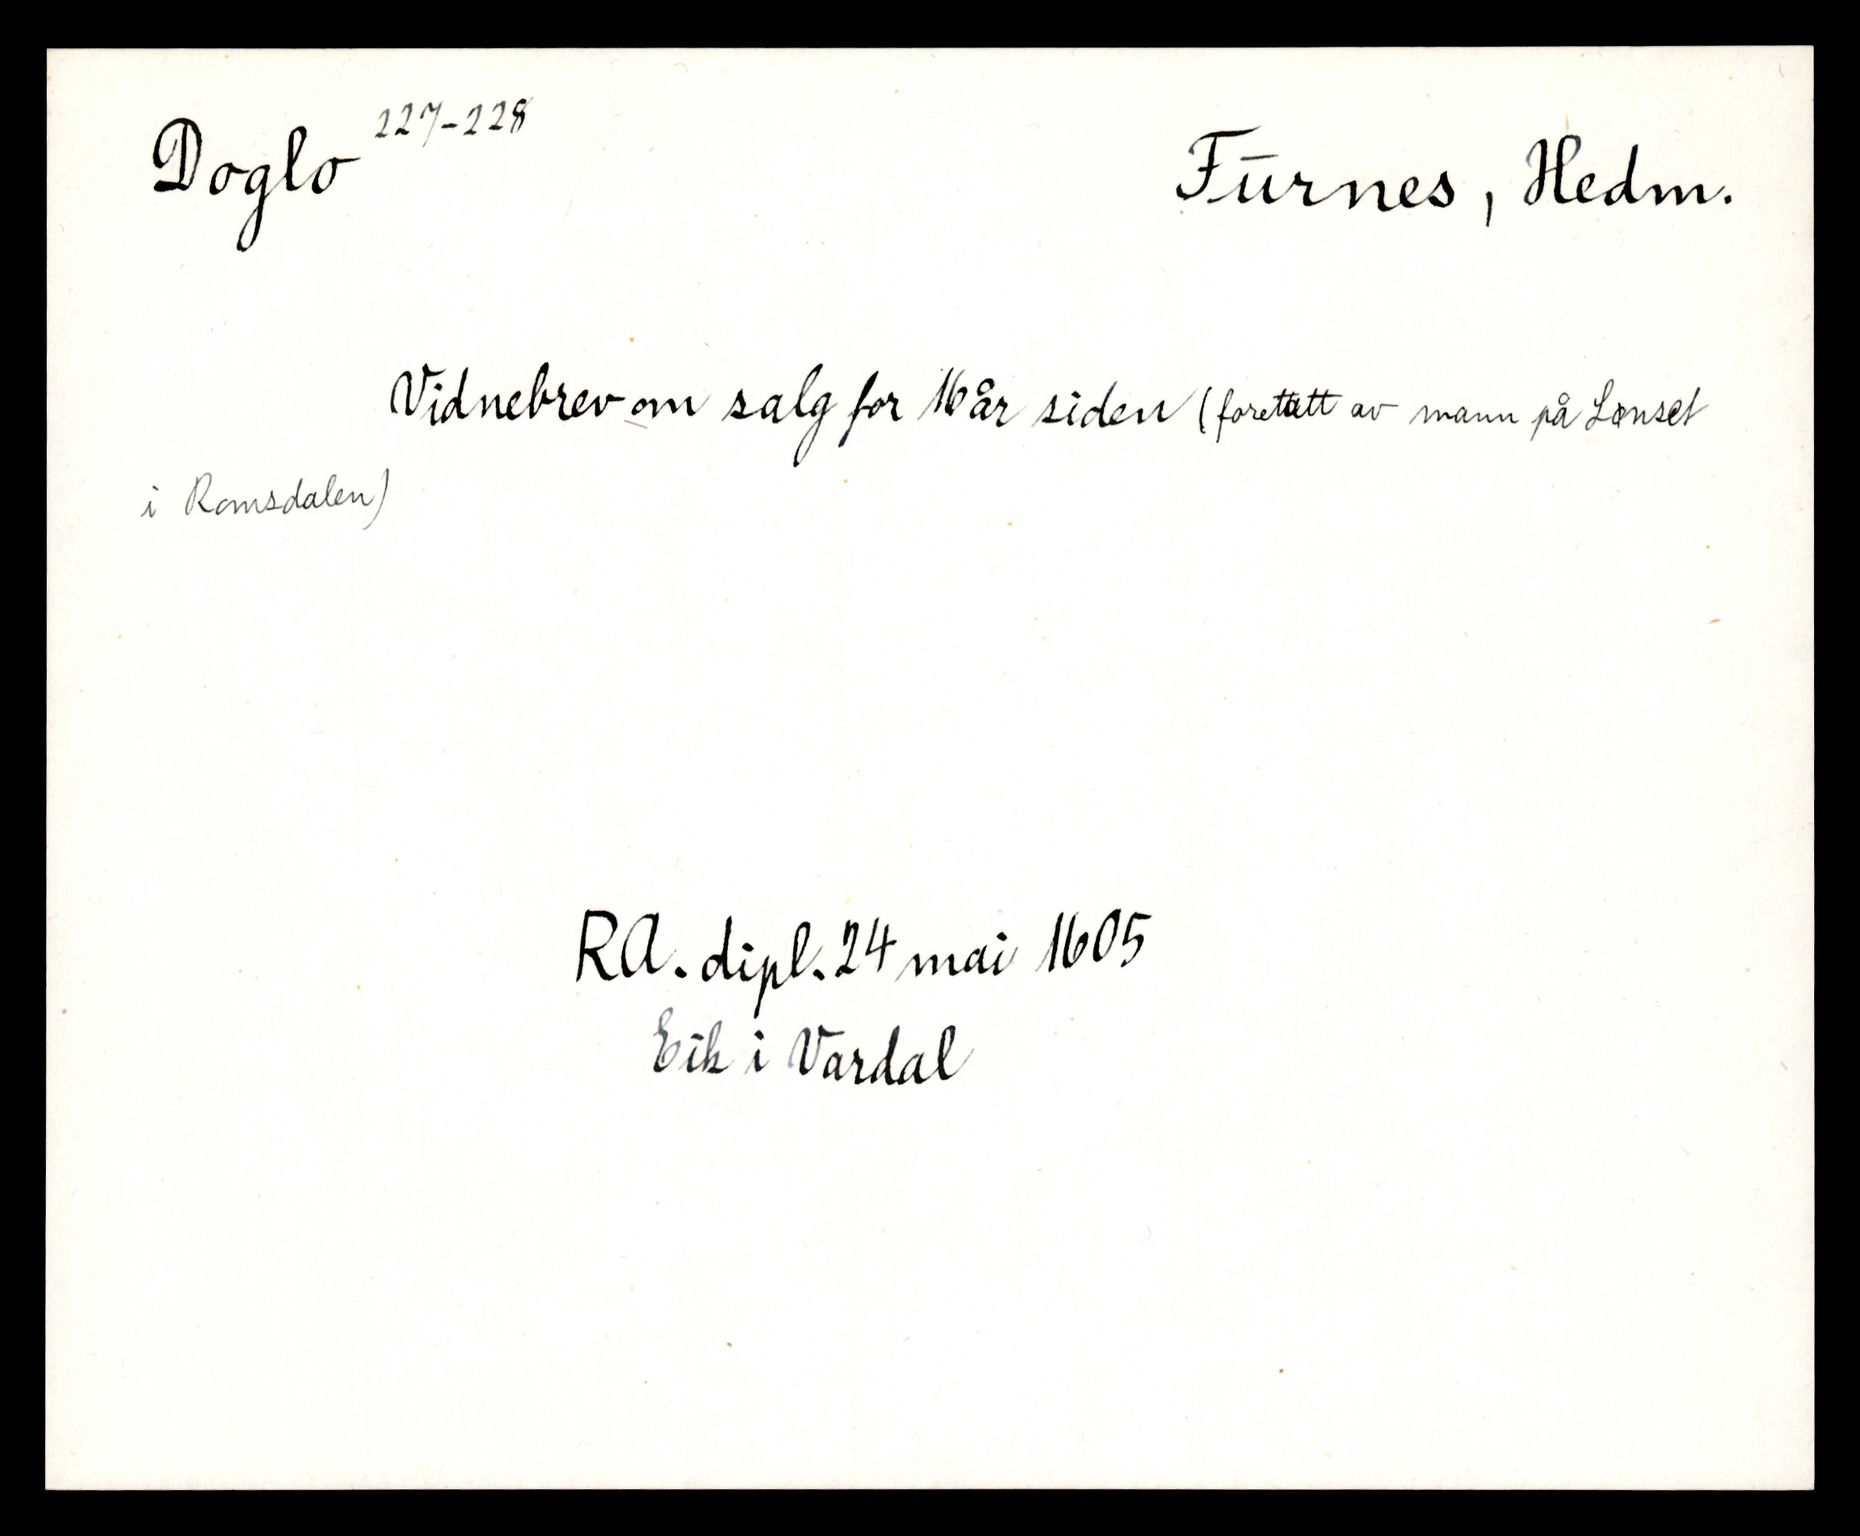 Doglo 227-228 Furnes, Hedm.
Vidnebrev om salg for 16 år siden (foretatt av mann på Lænset
i Romsdalen)
RA. dipl. 24 mai 1605
Eik i Vardal